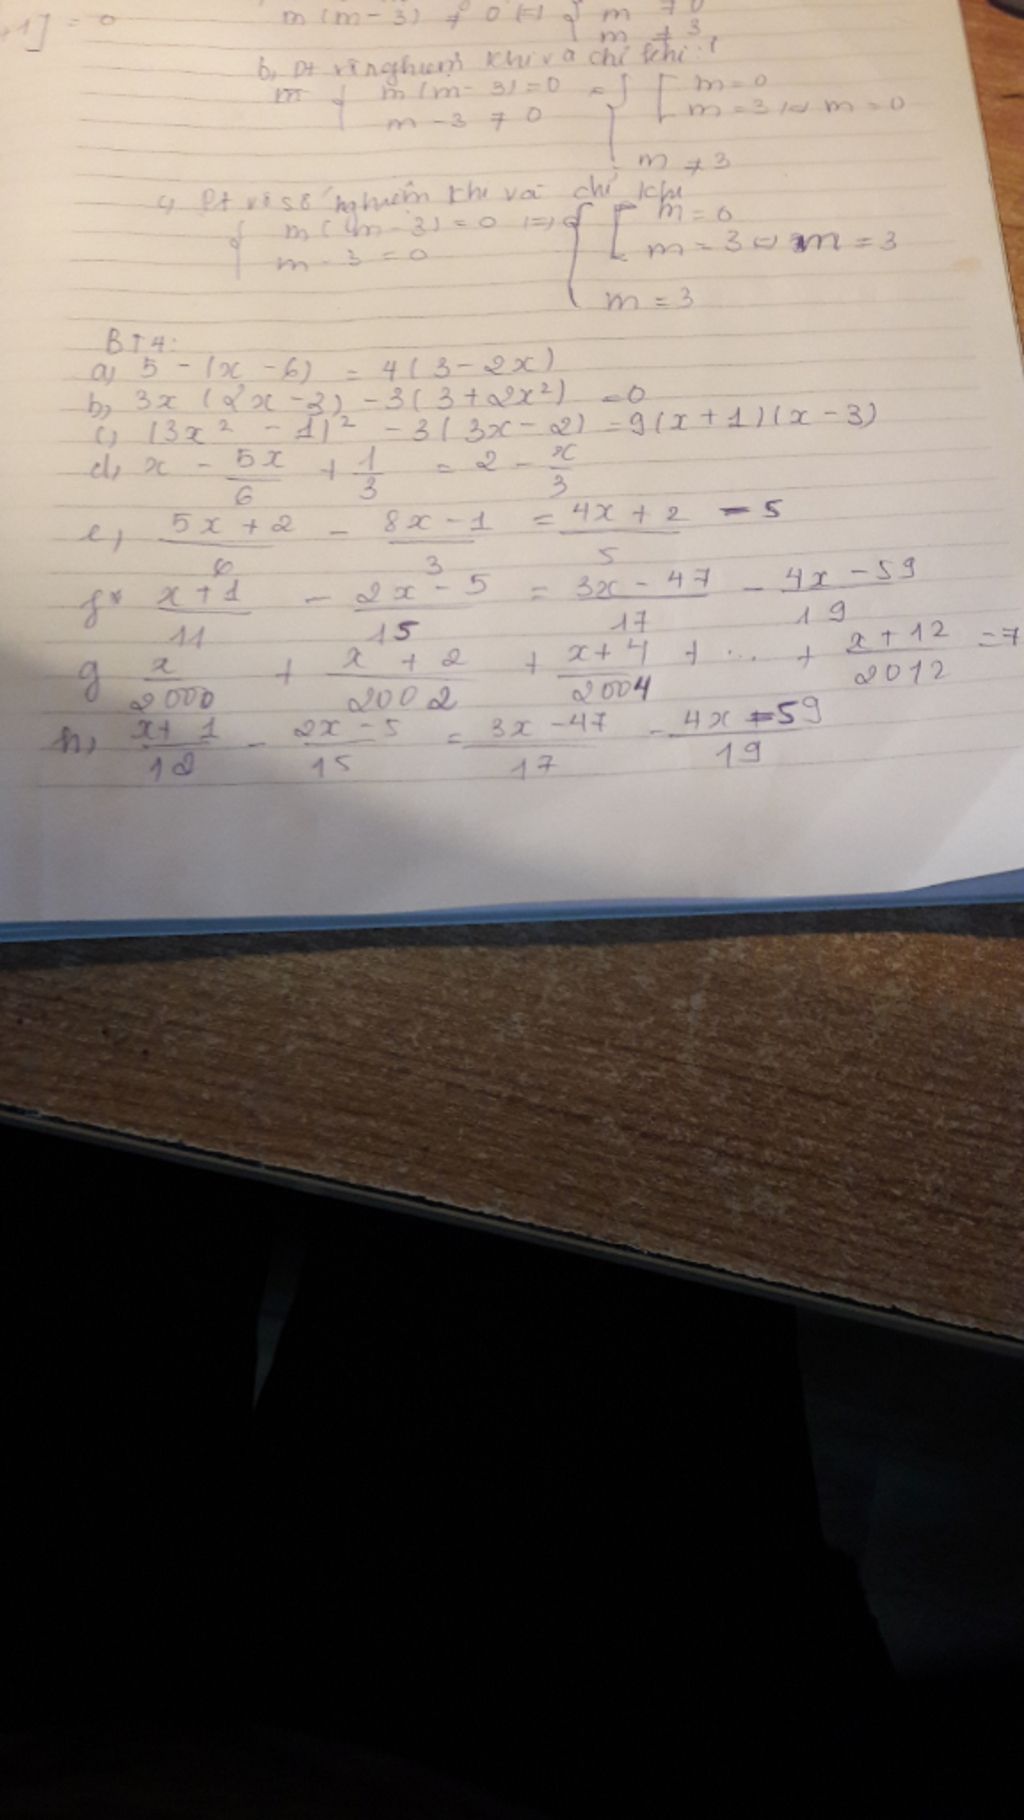 +1] = 0
m(m-3) ≠ 0 (=) { m ≠ 0
m ≠ 3
b, Pt vô nghiệm khi và chỉ khi:
{ m(m-3)=0 = { [ m=0
m-3 ≠ 0 m=3 ⇔ m=0
m ≠ 3
c, Pt vô số nghiệm khi và chỉ khi
{ m(m-3)=0 (=) { [ m=0
m-3=0 m=3 ⇔ m=3
m=3
BT4:
a, 5-(x-6) = 4(3-2x)
b, 3x(2x-3)-3(3+2x²) =0
c, (3x²-1)²-3(3x-2)=9(x+1)(x-3)
d, x - 5x/6 + 1/3 = 2 - x/3
e, (5x+2)/6 - (8x-1)/3 = (4x+2)/5 - 5
f* (x+1)/11 - (2x-5)/15 = (3x-47)/17 - (4x-59)/19
g x/2000 + (x+2)/2002 + (x+4)/2004 + ... + (x+12)/2012 =7
h, (x+1)/12 - (2x-5)/15 = (3x-47)/17 - (4x-59)/19